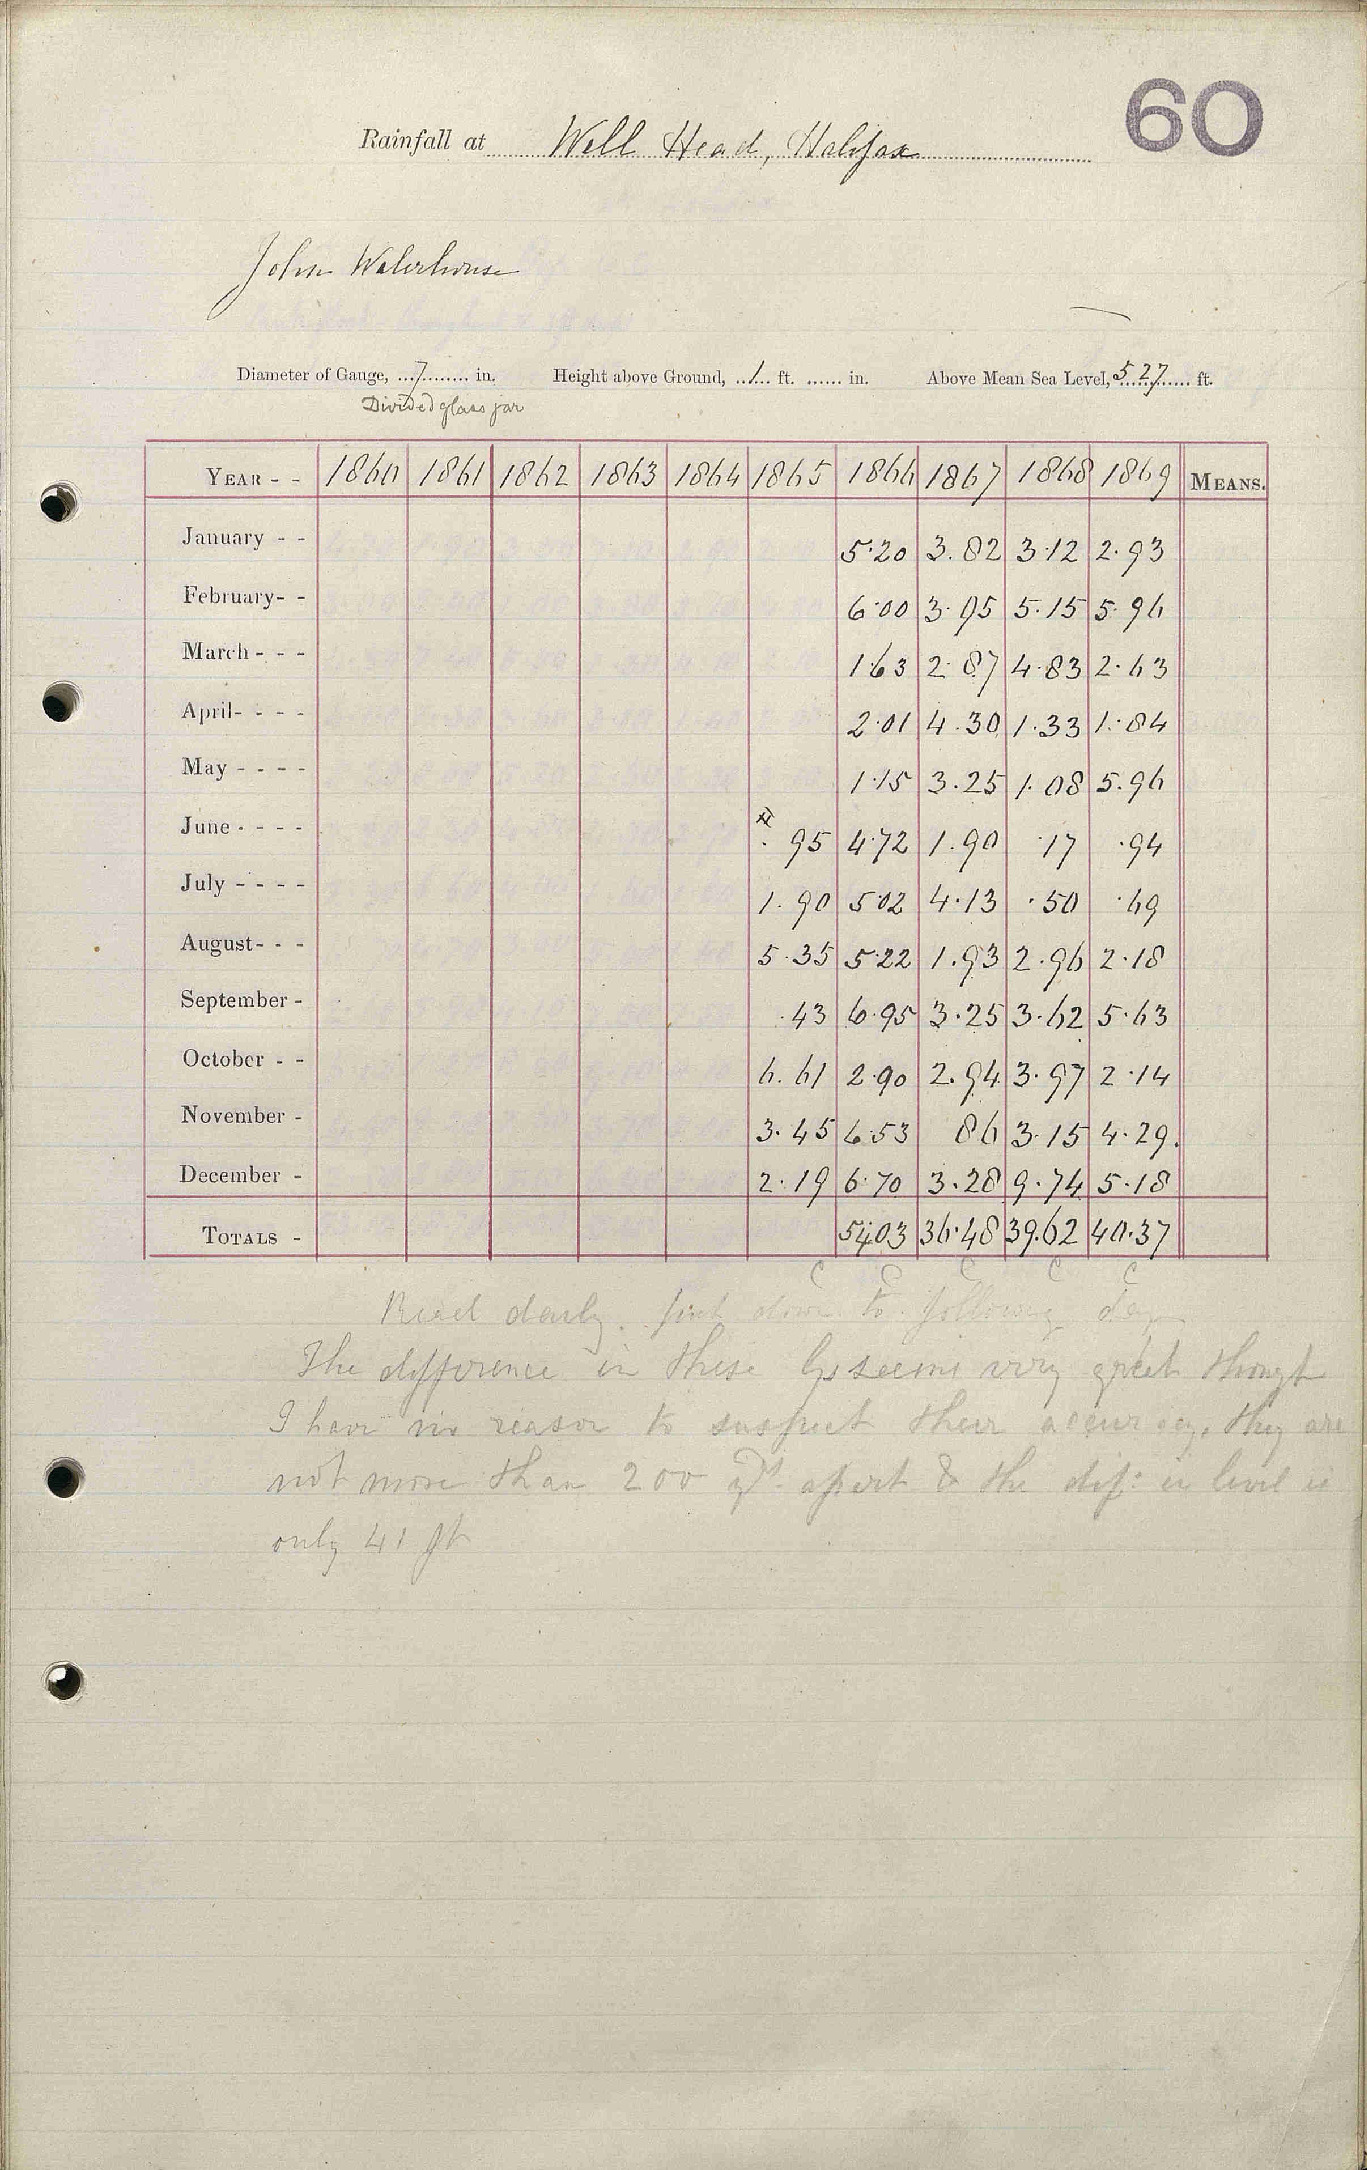 60
Rainfall at Well Head, Halifax
John Waterhouse
Diameter of Gauge, 7 in. Height above Ground, 1 ft. in. Above Mean Sea Level, 527 ft.
Divided glass jar
YEAR - - 1860 1861 1862 1863 1864 1865 1866 1867 1868 1869 MEANS.
January - - 5.20 3.82 3.12 2.93
February- - 6.00 3.95 5.15 5.96
March - - - 1.63 2.87 4.83 2.63
April- - - - 2.01 4.30 1.33 1.84
May - - - - 1.15 3.25 1.08 5.96
June - - - - .95 4.72 1.90 .17 .94
July - - - - 1.90 5.02 4.13 .50 .69
August- - - 5.35 5.22 1.93 2.96 2.18
September - .43 6.95 3.25 3.62 5.63
October - - 6.61 2.90 2.94 3.97 2.14
November - 3.45 6.53 86 3.15 4.29.
December - 2.19 6.70 3.28 9.74 5.18
TOTALS - 54.03 36.48 39.62 40.37
C C C C C
Read daily. put down to following day
The difference in these seems very great though
I have no reason to suspect their accuracy, they are
not more than 200 yds apart & the dif: in level is
only 41 ft